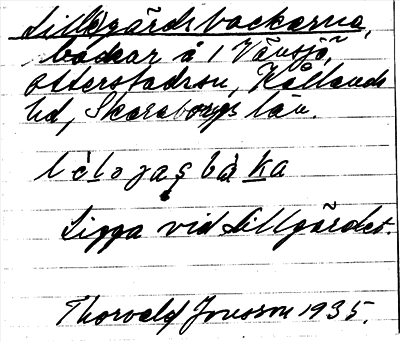 Lillgårdsbackarna,
backar å 1 Vänsjö,
Otterstadsn, Kållands
hd, Skaraborgs län.
Ligga vid Lillgården.
Thorvald Jonsson 1935.